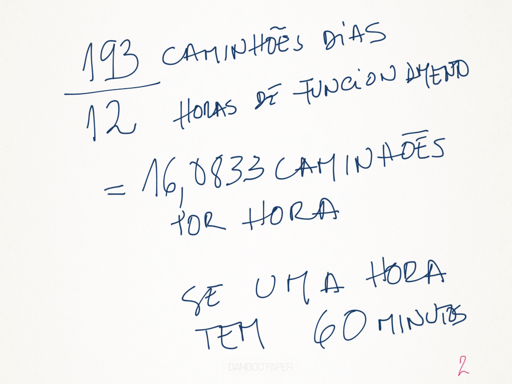 193 CAMINHÕES DIAS
12 HORAS DE FUNCIONAMENTO
= 16,0833 CAMINHÕES
POR HORA
SE UMA HORA
TEM 60 MINUTOS
2